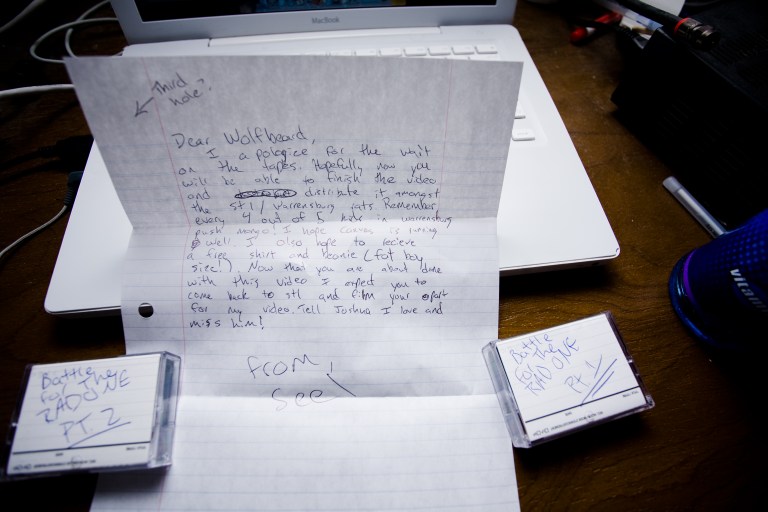 MacBook
Third
hole?
Dear Wolfbeard,
I apologize for the wait
on the tapes. Hopefully now you
will be able to finish the video
and distribute it amongst
the stl/ Warrensburg fats. Remember,
every 4 out of 5 kids in warrensburg
push mongo! I hope is
well. I also hope to recieve
a free shirt and beanie (fat boy
size!). Now that you are about done
with this video I expect you to
come back to stl and film your part
for my video. Tell Joshua I love and
miss him!
from,
see
Battle
for The
RAD ONE
PT. 2
Battle
For The
RAD ONE
Pt. 1
vitamin